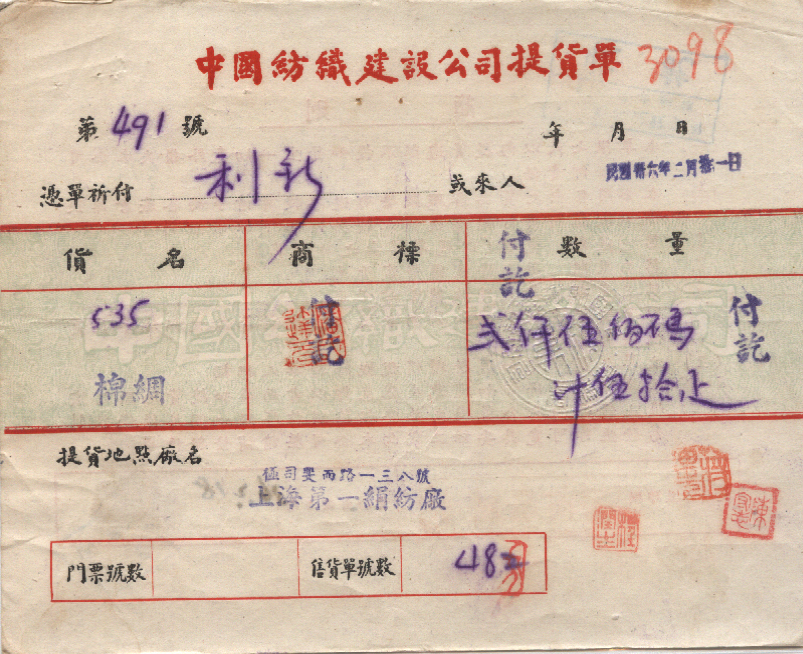 中國紡織建設公司提貨單 3098
第 491 號 年 月 日
民國卅六年二月拾一日
憑單祈付 利新 或來人
貨名 商標 數量
付訖
535 付訖 弍仟伍伯碼 付訖
棉綢 计伍拾疋
提貨地點廠名
極司斐而路一三八號
上海第一絹紡廠
門票號數 售貨單號數 482